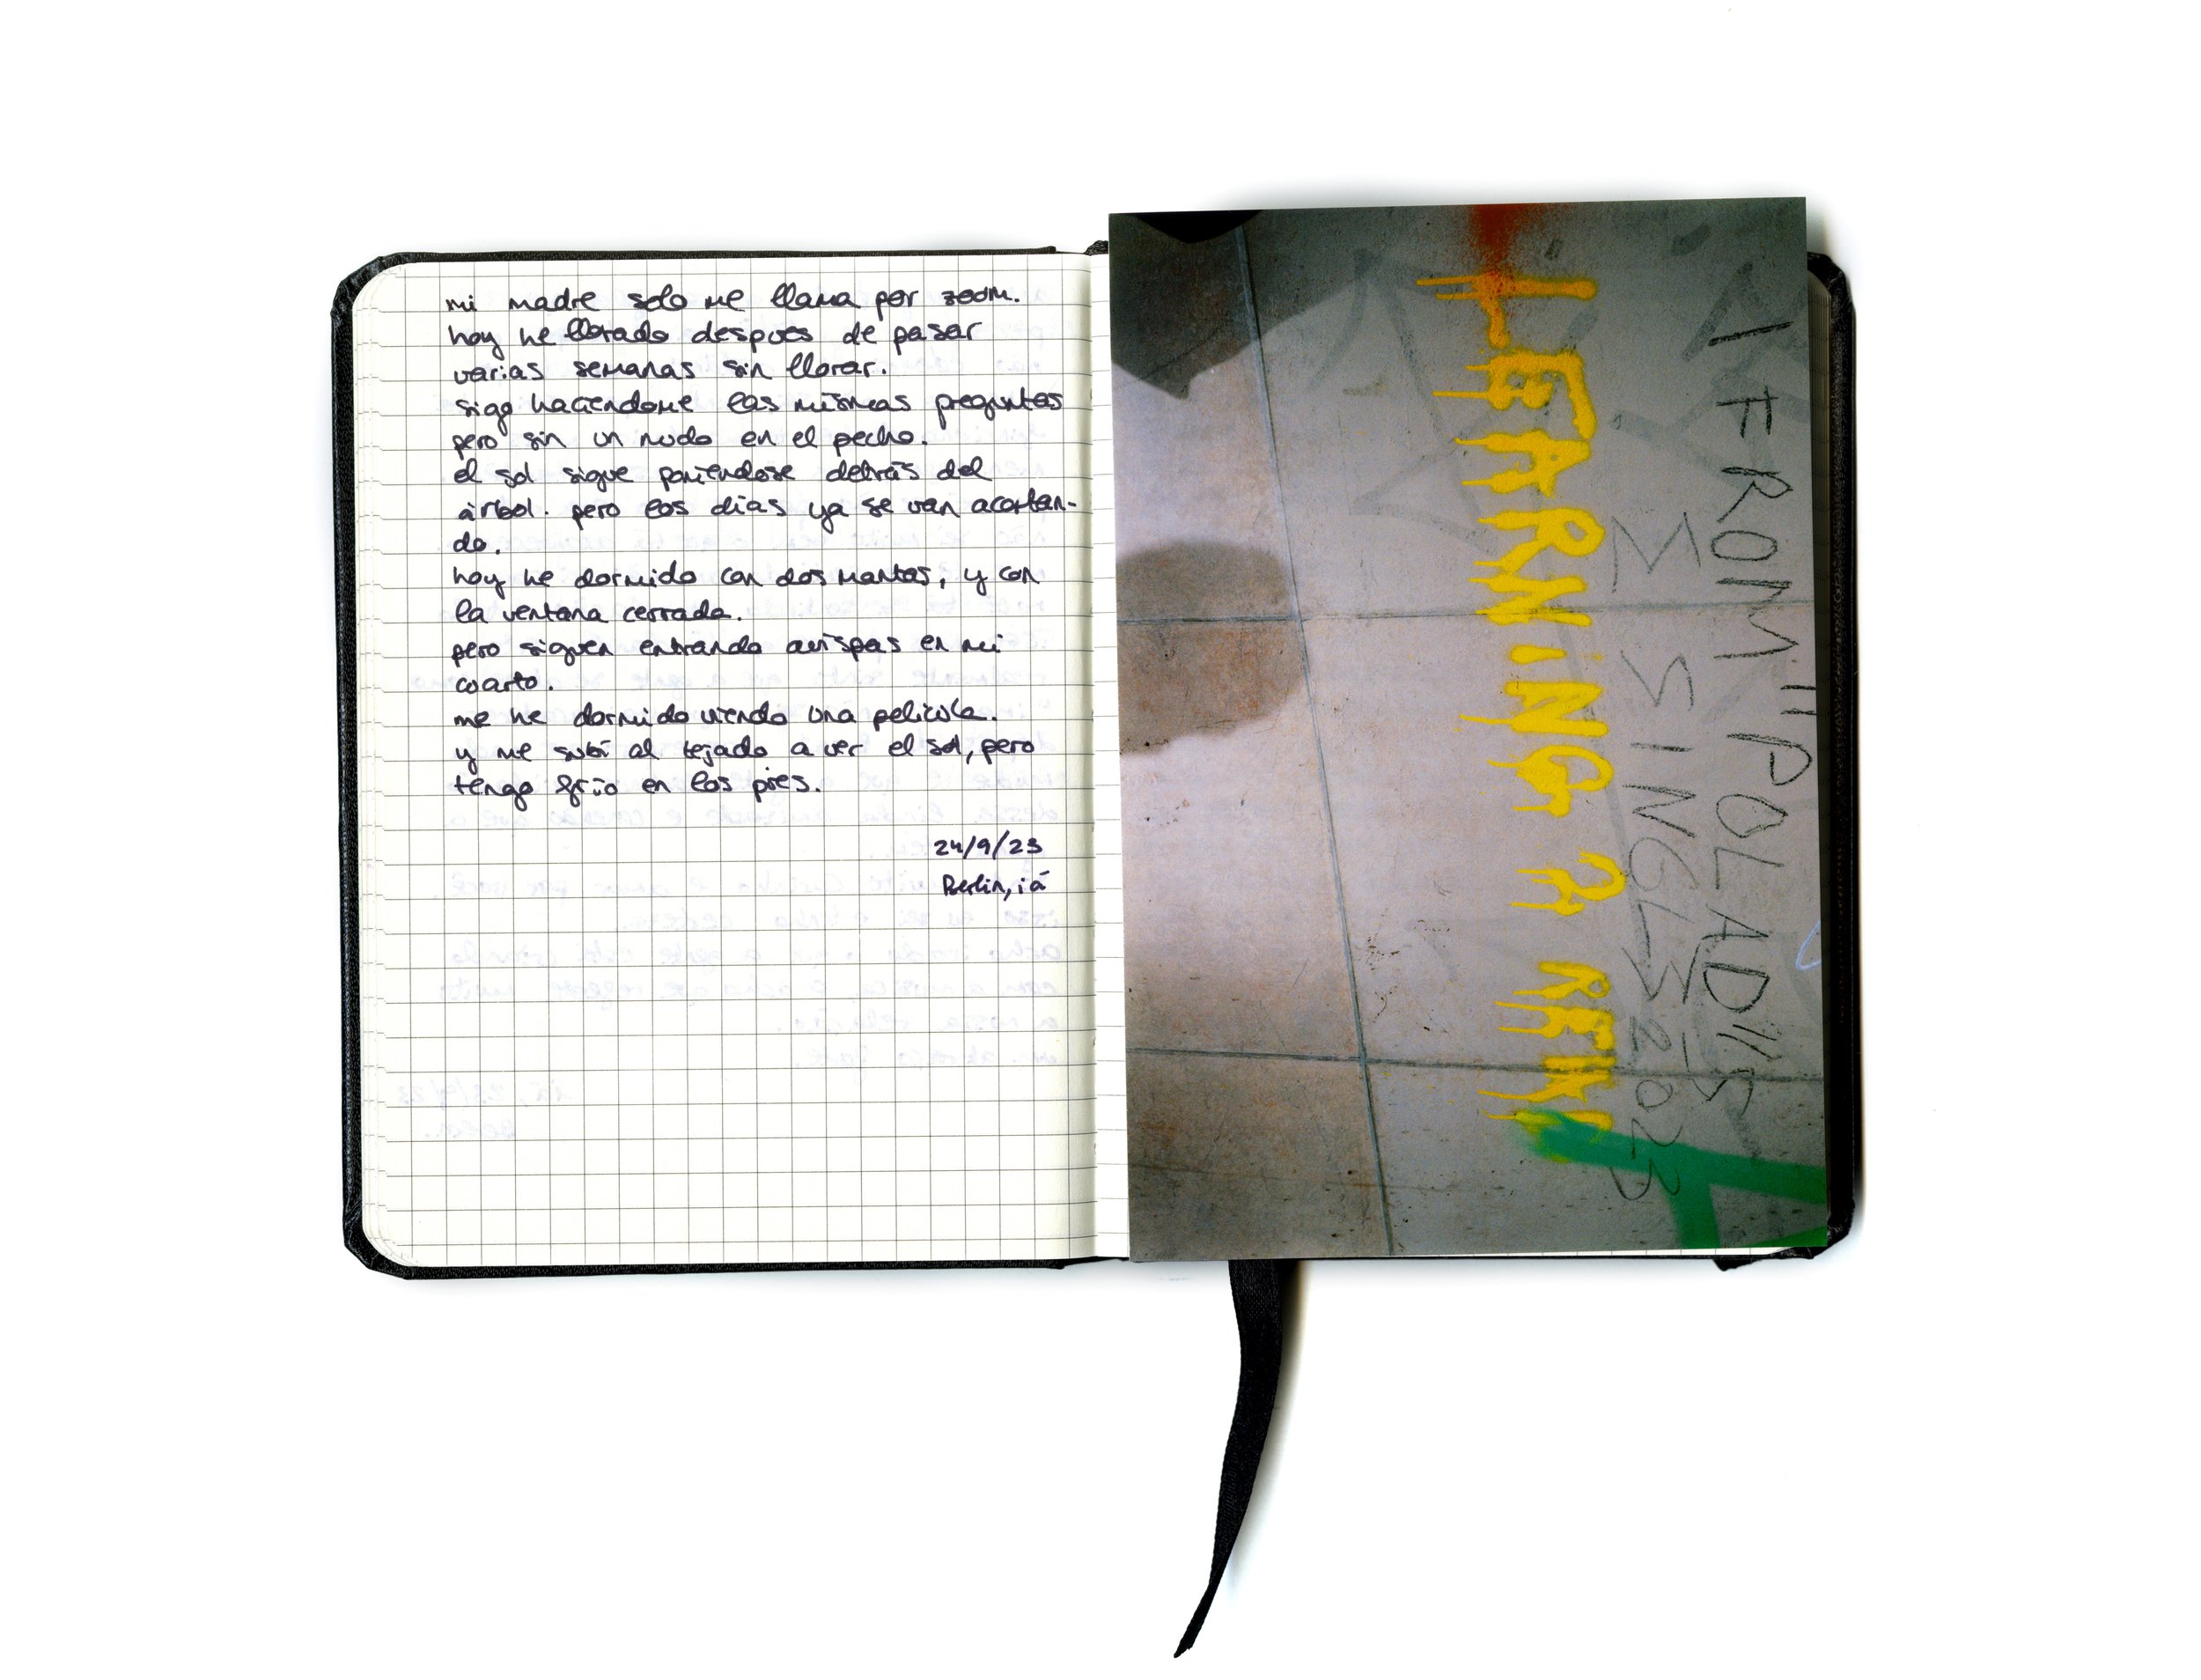 mi madre solo me llama por zoom.
hoy he llorado despues de pasar
varias semanas sin llorar.
sigo haciendome las mismas preguntas
pero sin un nudo en el pecho.
el sol sigue poniendose detrás del
árbol. pero los días ya se van acortan-
do.
hoy he dormido con dos mantas, y con
la ventana cerrada.
pero siguen entrando avispas en mi
cuarto.
me he dormido viendo una pelicula.
y me subí al tejado a ver el sol, pero
tengo frío en los pies.
24/9/23
Berlin, iá
FROM
SINGL
2023
LEARNING 2